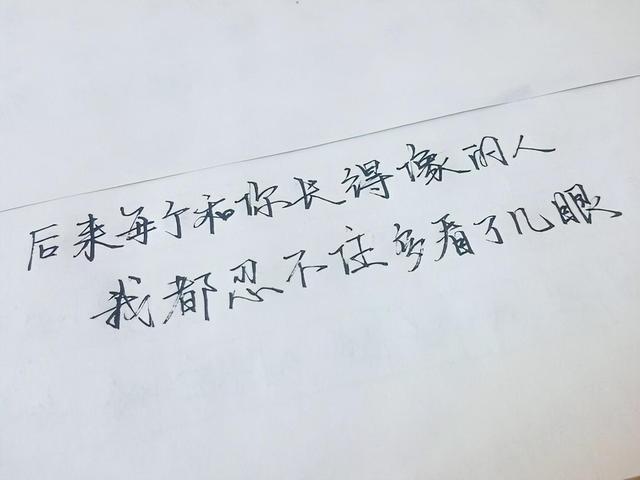 后来每个和你长得像的人
我都忍不住多看了几眼